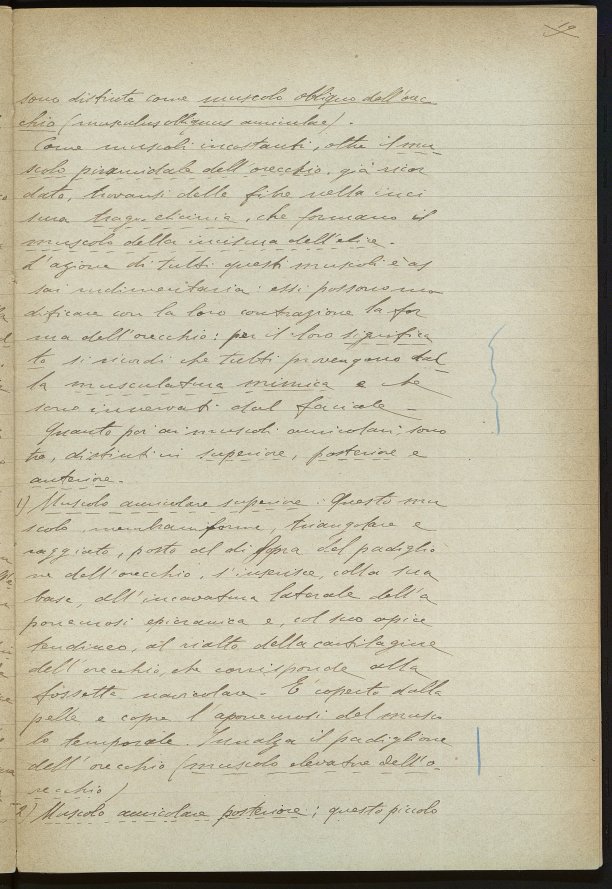 19
sono distinte come muscolo obliquo dell'orec
chio (musculus obliquus auriculae).
Come muscoli incostanti, oltre il mu-
scolo piramidale dell'orecchio, già ricor
dato, trovansi delle fibre nella inci
sura trago-elicinia, che formano il
muscolo della incisura dell'elice.
L'azione di tutti questi muscoli è as
sai rudimentaria: essi possono mo
dificare con la loro contrazione la for
ma dell'orecchio: per il loro significa
to si ricordi che tutti provengono dal
la muscolatura mimica e che
sono innervati dal faciale –
Quanto poi ai muscoli auricolari, sono
tre, distinti in superiore, posteriore e
anteriore.
1) Muscolo auricolare superiore: Questo mu
scolo membraniforme, triangolare e
raggiato, posto al di sopra del padiglio
ne dell'orecchio, s'inserisce, colla sua
base, all'incavatura laterale dell'a
poneurosi epicranica e, col suo apice
tendineo, al rialto della cartilagine
dell'orecchio, che corrisponde alla
fossetta navicolare – È coperto dalla
pelle e copre l'aponeurosi del musco
lo temporale. Innalza il padiglione
dell'orecchio (muscolo elevatore dell'o-
recchio)
2) Muscolo auricolare posteriore; questo piccolo